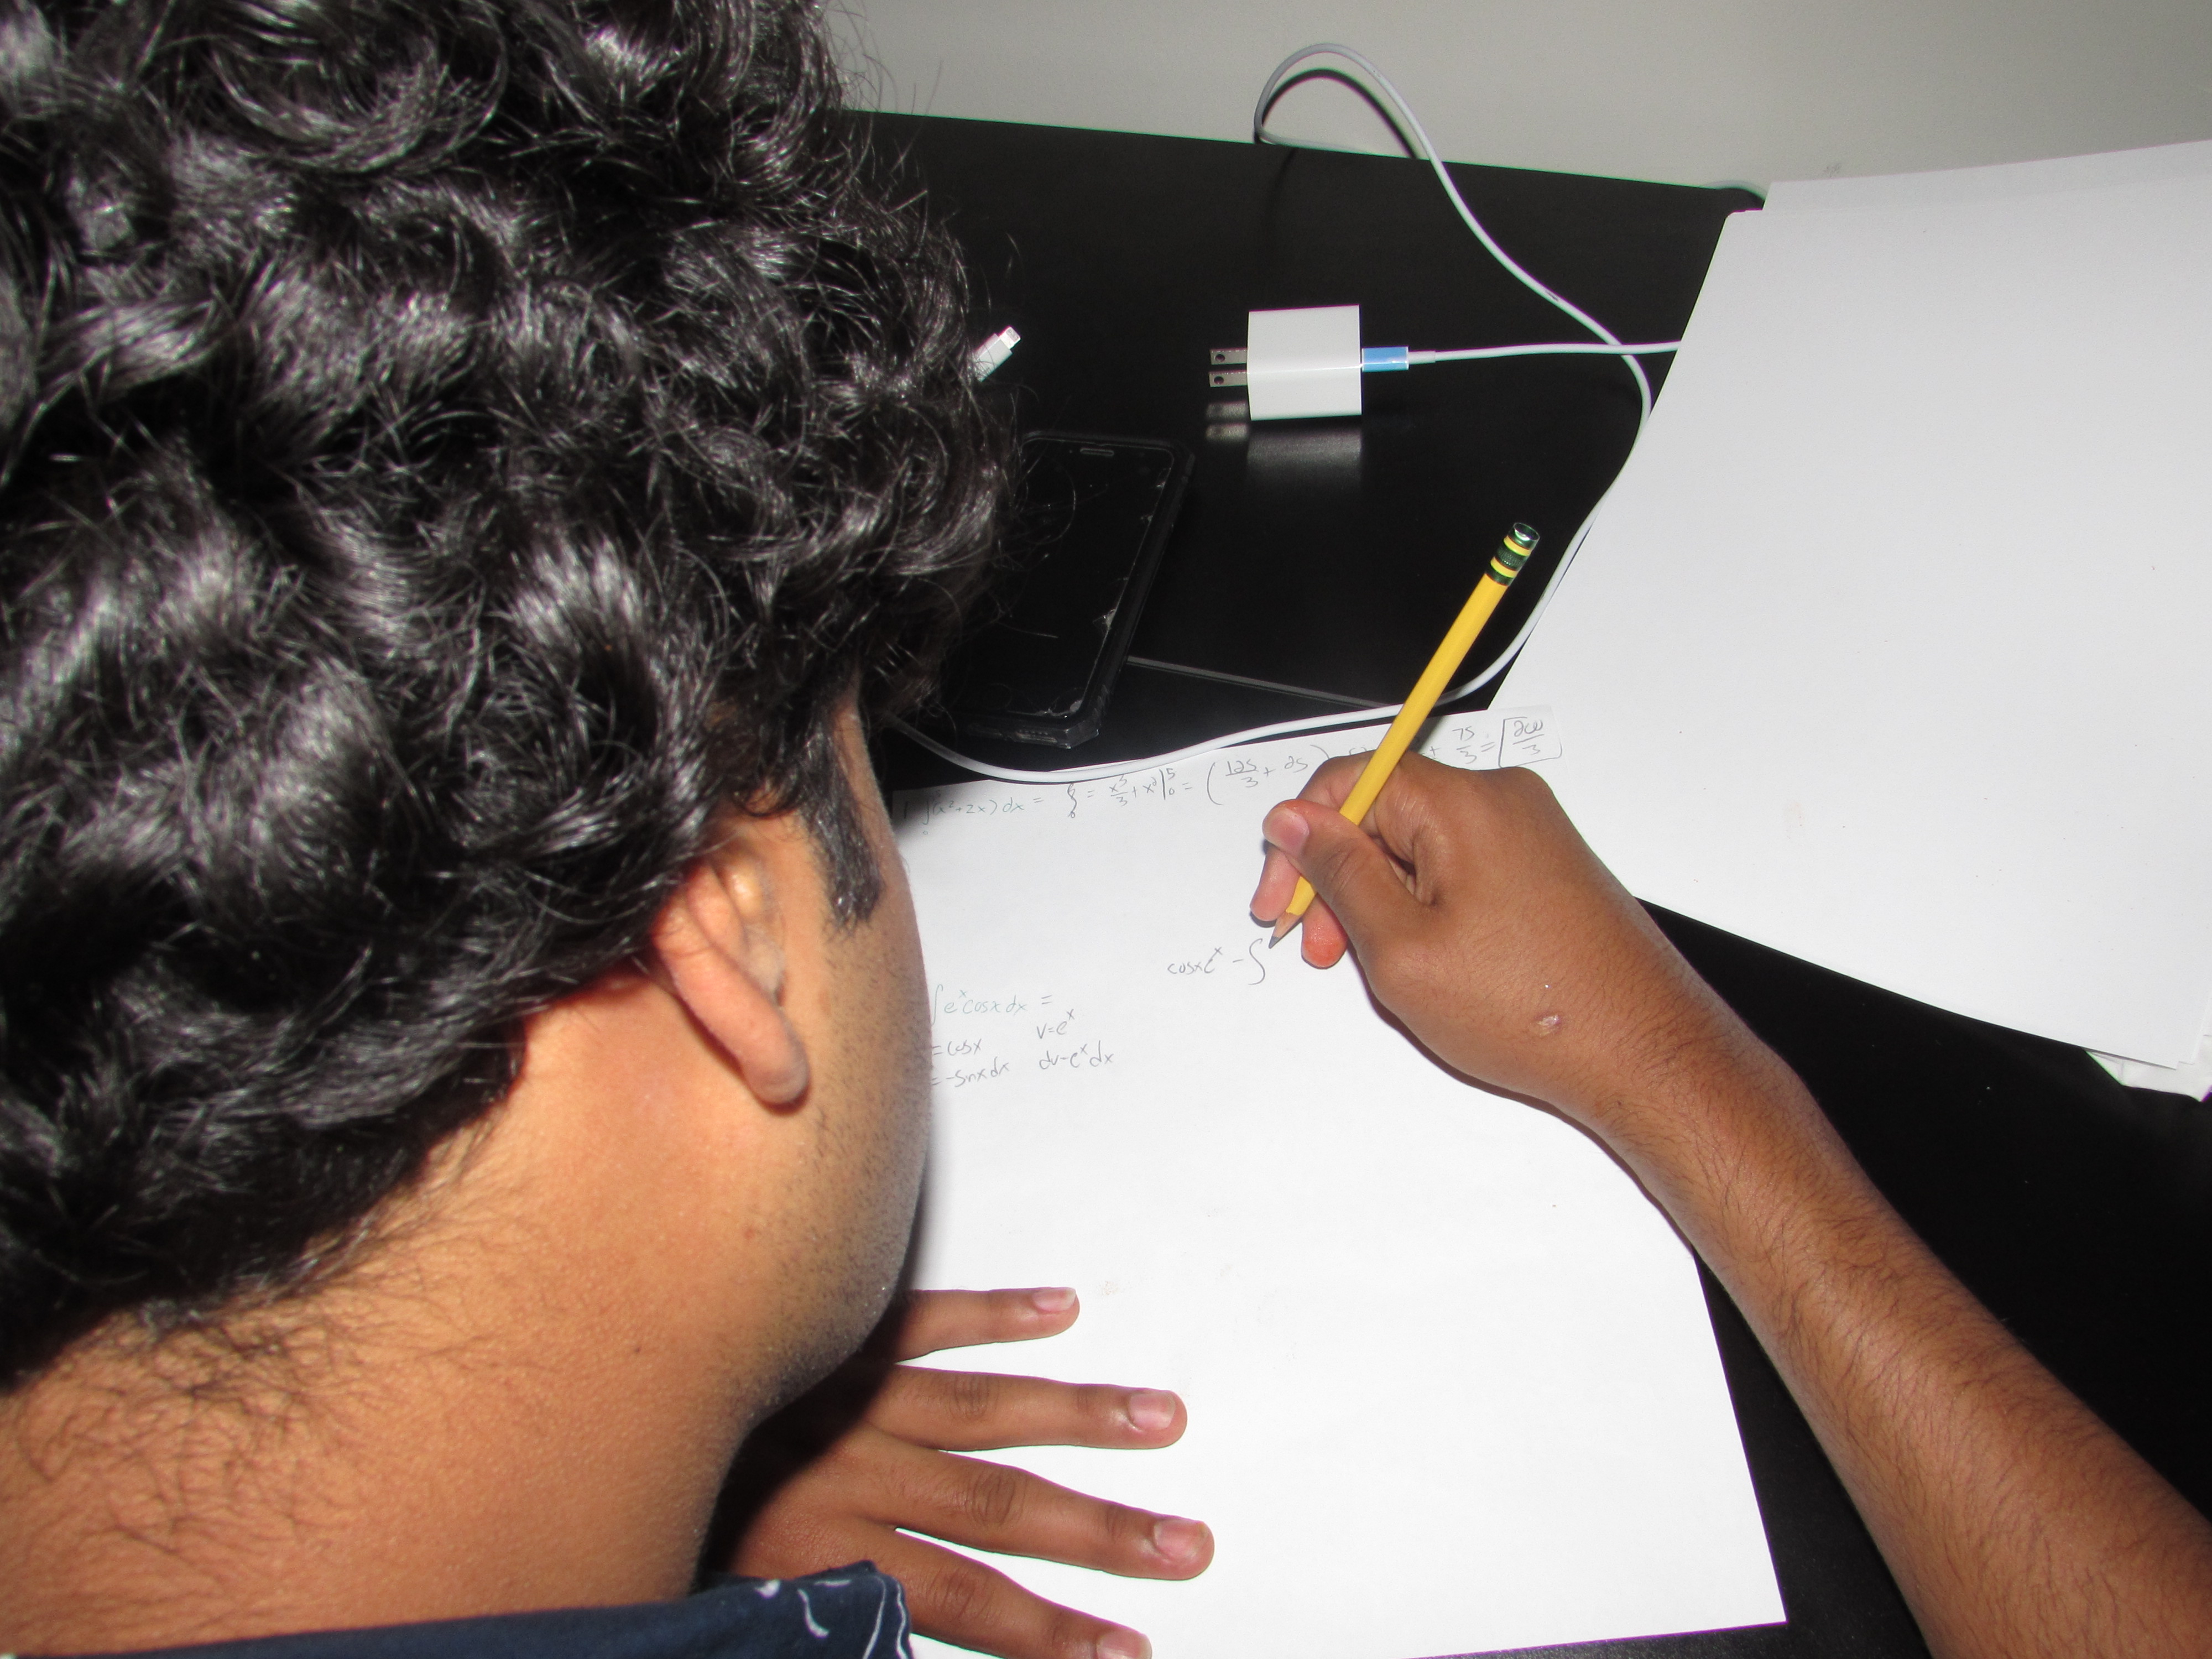 ∫(x²+2x)dx = ∫ = x³/3 + x² |₀⁵ = (125/3 + 25) + 75/3 = 200/3
cosxeˣ - ∫
∫eˣcosxdx =
= cosx v=eˣ
= -sinxdx dv=eˣdx